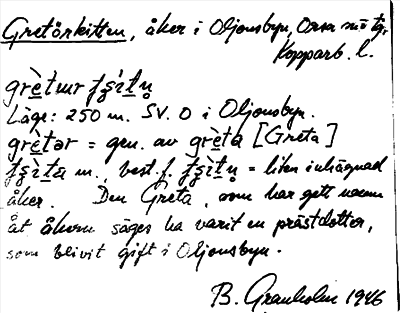 Gretörkitten, åker i Oljonsbyn, Orsa sn
Kopparb. l.
Läge: 250 m. SV. O i Oljonsbyn.
= gen. av grèta [Greta]
m., best. f. = liten inhägnad
åker. Den Greta, som har gett namn
åt åkern säges ha varit en prästdotter,
som blivit gift i Oljonsbyn.
B. Granholm 1946